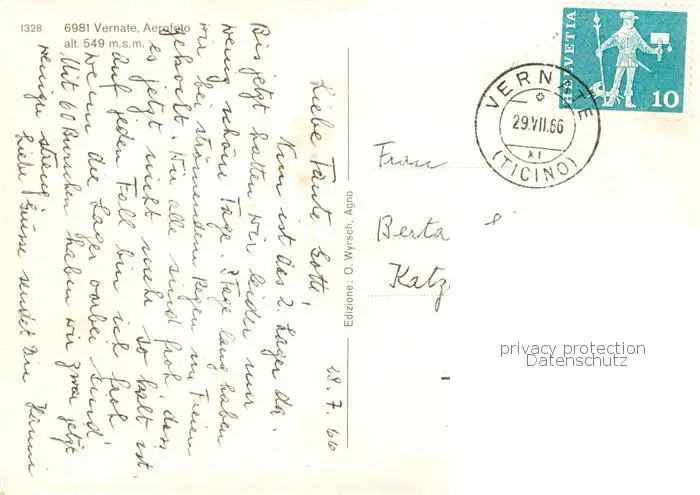 1328
6981 Vernate, Aerofoto
alt. 549 m.s.m.
28.7.66
Liebe Tante Gotte!
Nun ist das 2. Lager da.
Bis jetzt hatten wir leider nur
wenig schöne Tage. 3 Tage lang haben
wir bei strömendem Regen im Freien
gekocht. Wir alle sind froh, dass
es jetzt nicht mehr so kalt ist.
Auf jeden Fall bin ich froh
wenn die Lager vorbei sind!
Mit 60 Burschen haben wir zwar jetzt
weniger streng.
Liebe Grüsse sendet Dir Hanni
Edizione: O. Wyrsch, Agno
HELVETIA
10
VERNATE
29.VII.66
XI
(TICINO)
Frau
Berta
Katz
privacy protection
Datenschutz